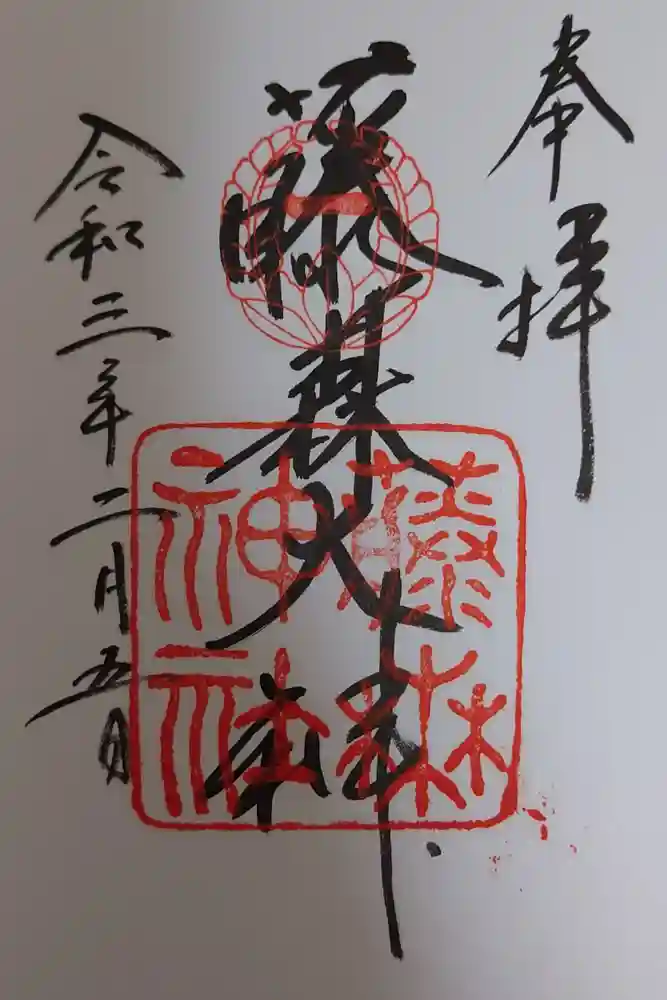 奉拝
藤森大神
藤森
神社
令和三年二月五日